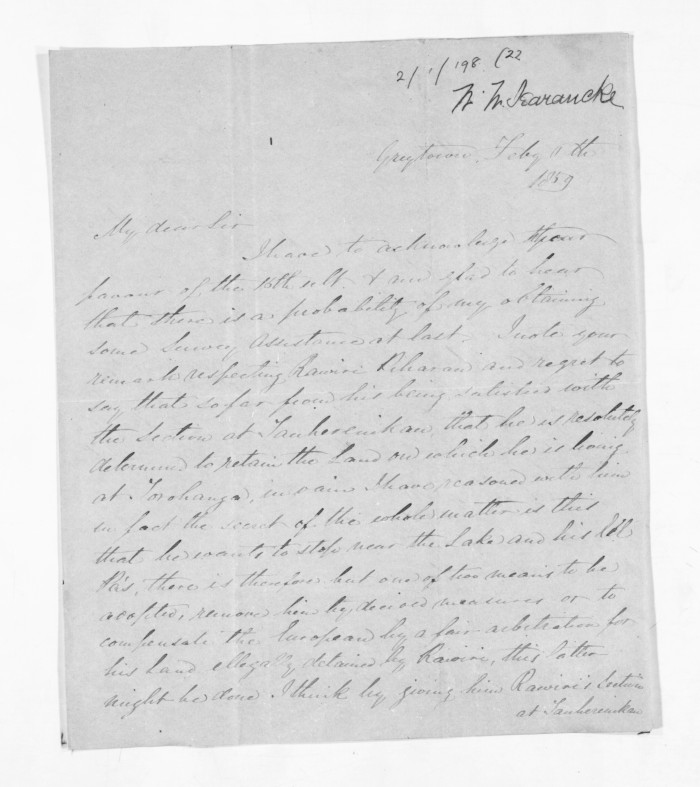 2/1/198 (22
W. N. Searancke
Greytown Feby 11th
1859
My dear Sir
I have to acknowledge your
favour of the 15th ult. & am glad to hear
that there is a probability of my obtaining
some Survey Assistance at last. I note your
remark respecting Rawiri and regret to
say that so far from his being satisfied with
the Section at Tauherenikau that he is resolutely
determined to retain the Land on which he is living
at in vain I have reasoned with him
in fact the secret of the whole matter is this
that he wants to stop near the Lake and his Eel
there is therefore but one of two means to be
adopted, remove him by decided measures or to
compensate the European by a fair arbitration for
his Land illegally detained by Rawiri, this latter
might be done I think by giving him Rawiri's Section
at Tauherenikau